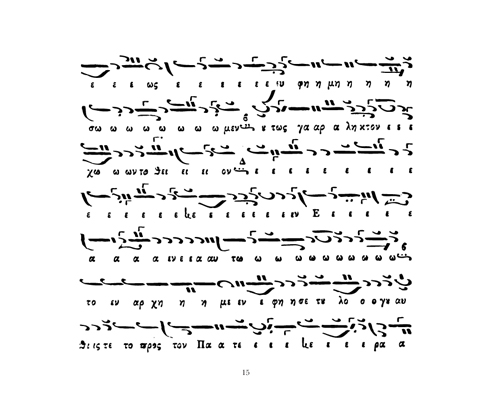 ε ε ε ως ε ε ε ε ε ευ φη η μη η η η η
σω ω ω ω ω ω ω ω μεν ου τως γα αρ α λη κτον ε ε ε
χω ω ων το θει ει ει ον ε ε ε ε ε ε ε ε ε
ε ε ε ε ε ε ε ε ε ε ε εν Ε ε ε ε ε
α α α α εν ε ε α αυ τω ω ω ω ω ω ω ω ω ω ω ω
το εν αρ χη η η με εν ε φη η σε του λο ο ο γου αυ
θι ις τε το προς τον Πα α τε ε ε ε ε ε ε ρα α
15